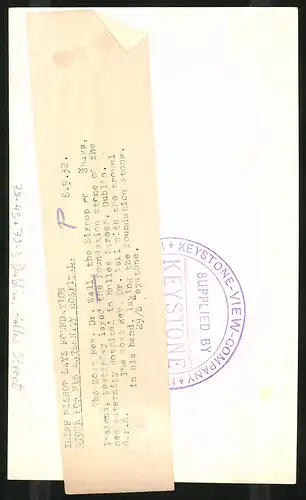 IRISH BISHOP LAYS FOUNDATION
STONE FOR NEW MATERNITY HOSPITAL.
P 8.9.32.
The Most Rev. Dr. Wall, the Bishop of Thasos,
Ireland, yesterday layed the foundation stone of the
new maternity hospital in Holles Street, Dublin.
O.P.S. The Most Rev. Dr. Wall with the trowel
in his hand, laying the foundation stone.
29/S Keystone.
KEYSTONE-VIEW-COMPANY
SUPPLIED BY
KEYSTONE